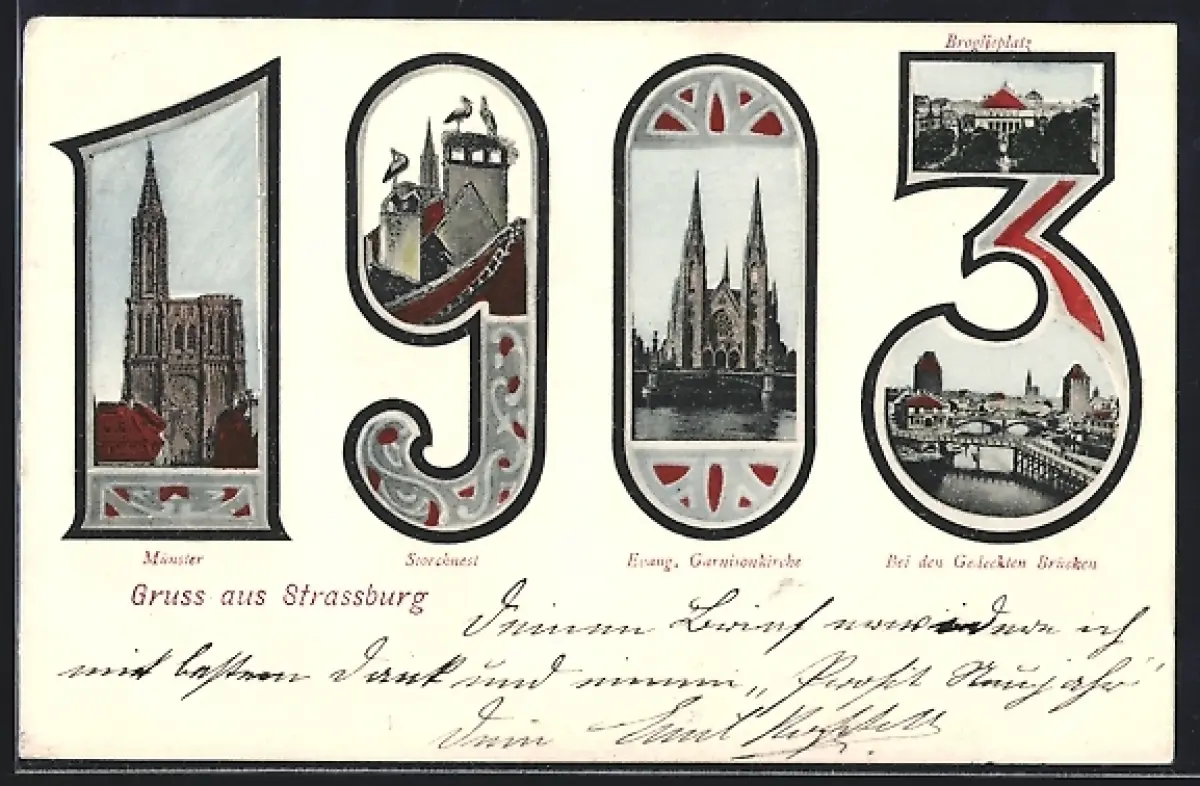 Broglieplatz
Münster
Storchnest
Evang. Garnisonkirche
Bei den Gedeckten Brücken
Gruss aus Strassburg
Deinen Brief erwidere ich
mit bestem Dank und einem „Prosit Neujahr“
Dein Emil